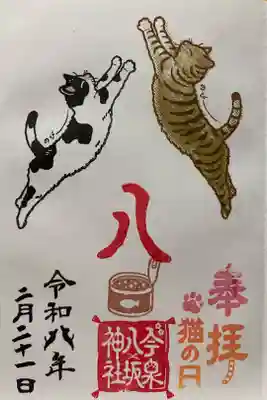 奉拝
猫の日
八
今泉
八坂
神社
令和八年
二月二十一日